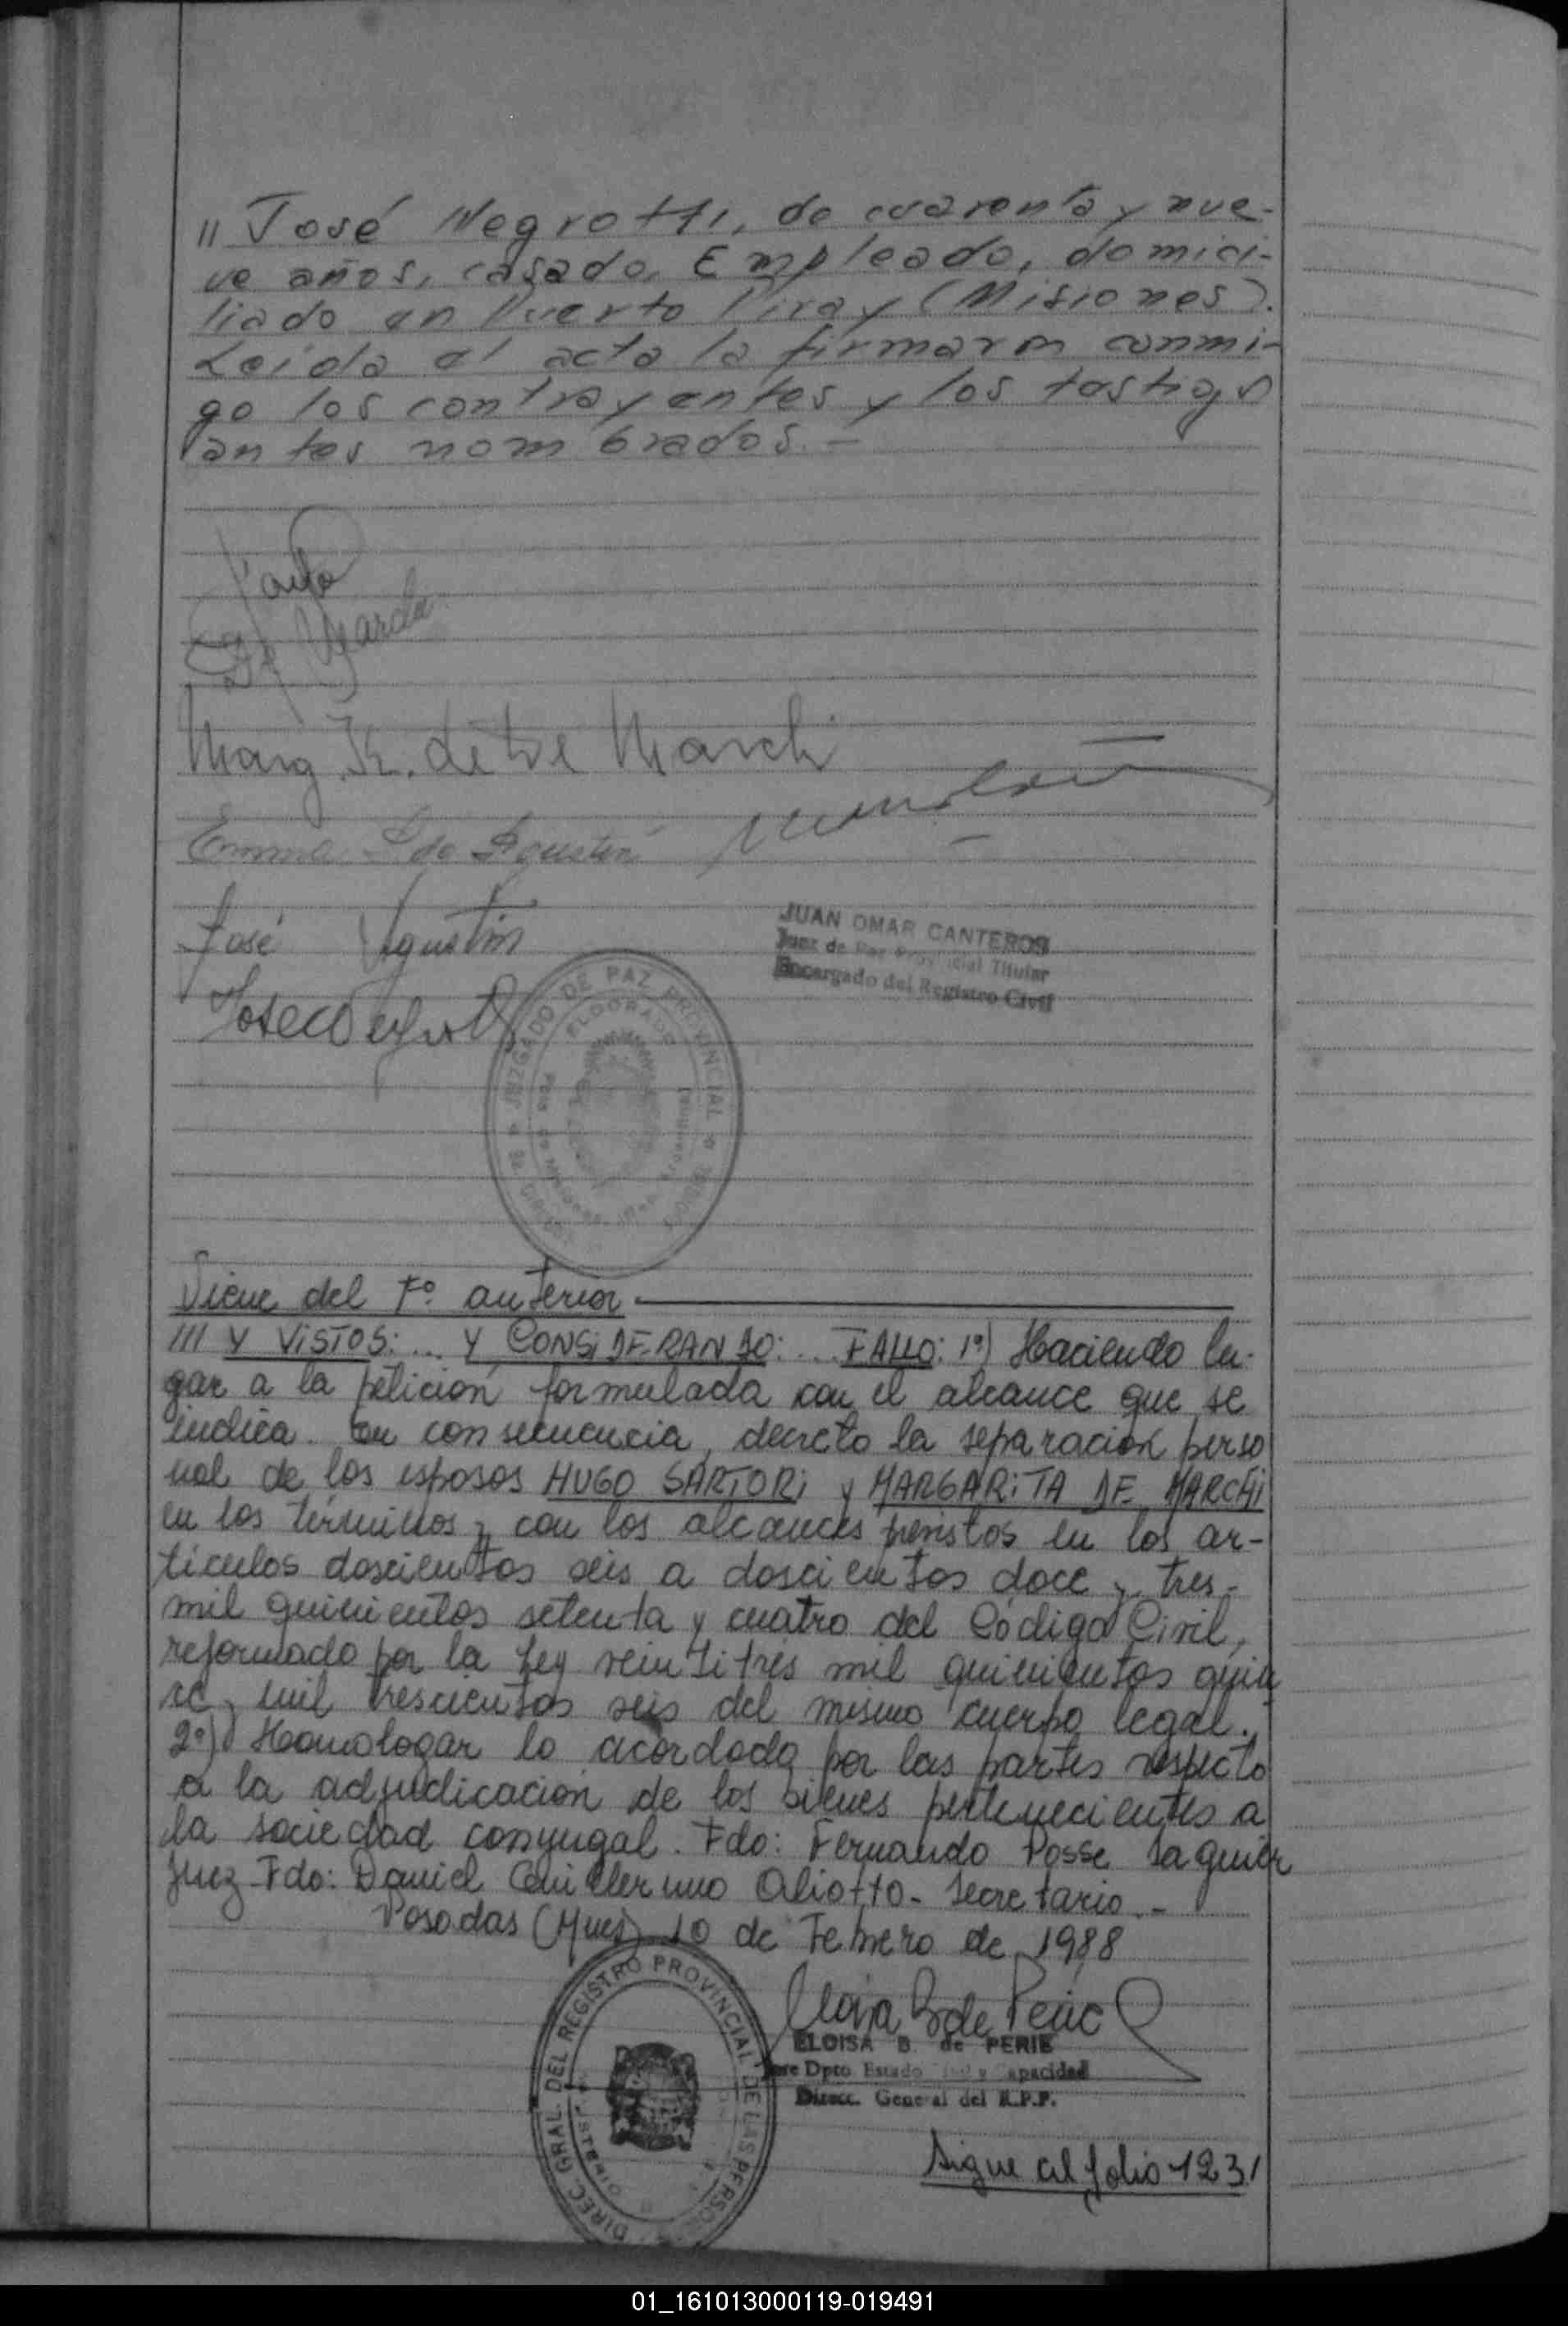 " José Negrotti, de cuarenta y nue-
ve años, casado, Empleado, domici-
liado en Puerto Piray (Misiones).
Leída el acta la firmaron conmi-
go los contrayentes y los testigos
antes nombrados.-
Marg K. de De Marchi
José Agustin
JUAN OMAR CANTEROS
Juez de Paz Provincial Titular
Encargado del Registro Civil
JUZGADO DE PAZ PROVINCIAL
ELDORADO
Viene del Fº. anterior
/// Y VISTOS: ... Y CONSIDERANDO: ... FALLO: 1º) Haciendo lu-
gar a la petición formulada con el alcance que se
indica. En consecuencia, decreto la separación perso
nal de los esposos HUGO SARTORI y MARGARITA DE MARCHI
en los términos y con los alcances previstos en los ar-
tículos doscientos seis a doscientos doce y tres-
mil quinientos setenta y cuatro del Código Civil,
reformado por la Ley veintitrés mil quinientos quin
ce y mil trescientos seis del mismo cuerpo legal.
2º) Homologar lo acordado por las partes respecto
a la adjudicación de los bienes pertenecientes a
la sociedad conyugal. Fdo: Fernando Posse Saguier
Juez-Fdo: Daniel Guillermo Aliotto- Secretario.-
Posadas (Mnes) 10 de Febrero de 1988
ELOISA B. de PERIE
Jefe Dpto. Estado Civil y Capacidad
Direcc. General del R.P.P.
DIREC. GRAL. DEL REGISTRO PROVINCIAL DE LAS PERSONAS
Sigue al folio 1231
01_161013000119-019491